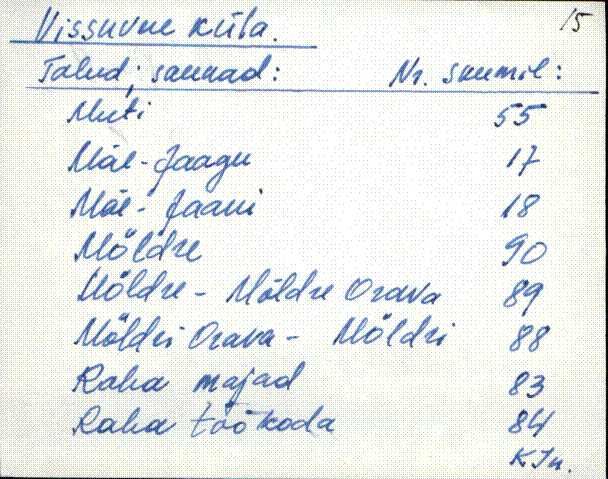 15
Vissuvere küla.
Talud; saunad:   Nr. skeemil:
Muti   55
Mäe-Jaagu   17
Mäe-Jaani   18
Möldre   90
Möldre - Möldre Orava   89
Möldri Orava - Möldri   88
Raha majad   83
Raha töökoda   84